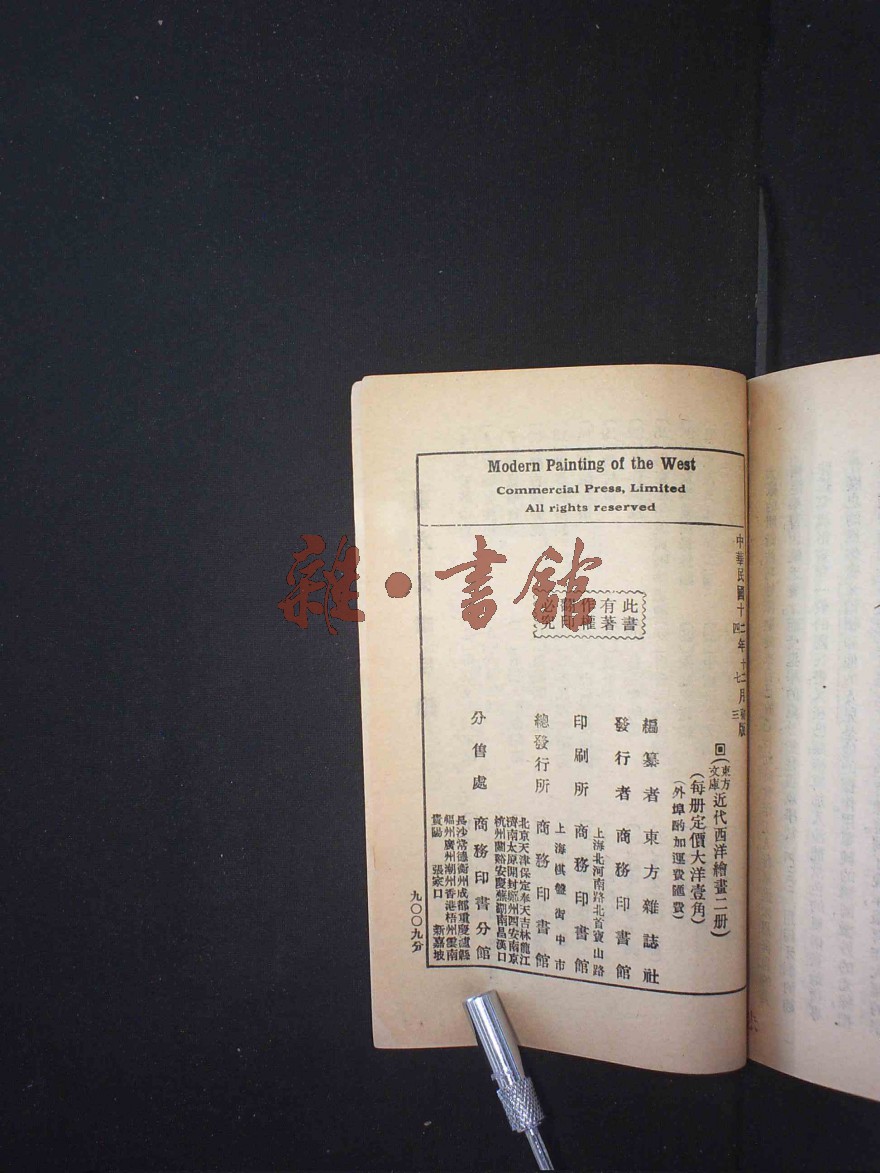 Modern Painting of the West
Commercial Press, Limited
All rights reserved
中華民國十二年十二月初版
四 七 三
此書
有著
作權
翻印
必究
回(東方文庫)近代西洋繪畫二册)
(每册定價大洋壹角)
(外埠酌加運費匯費)
編纂者 東方雜誌社
發行者 商務印書館
上海北河南路北首寶山路
印刷所 商務印書館
上海棋盤街中市
總發行所 商務印書館
北京天津保定奉天吉林龍江
濟南太原開封鄭州西安南京
杭州蘭谿安慶蕪湖南昌漢口
分售處 商務印書分館
長沙常德衡州成都重慶瀘縣
福州廣州潮州香港梧州雲南
貴陽 張家口 新嘉坡
九〇〇九分
雜·書館